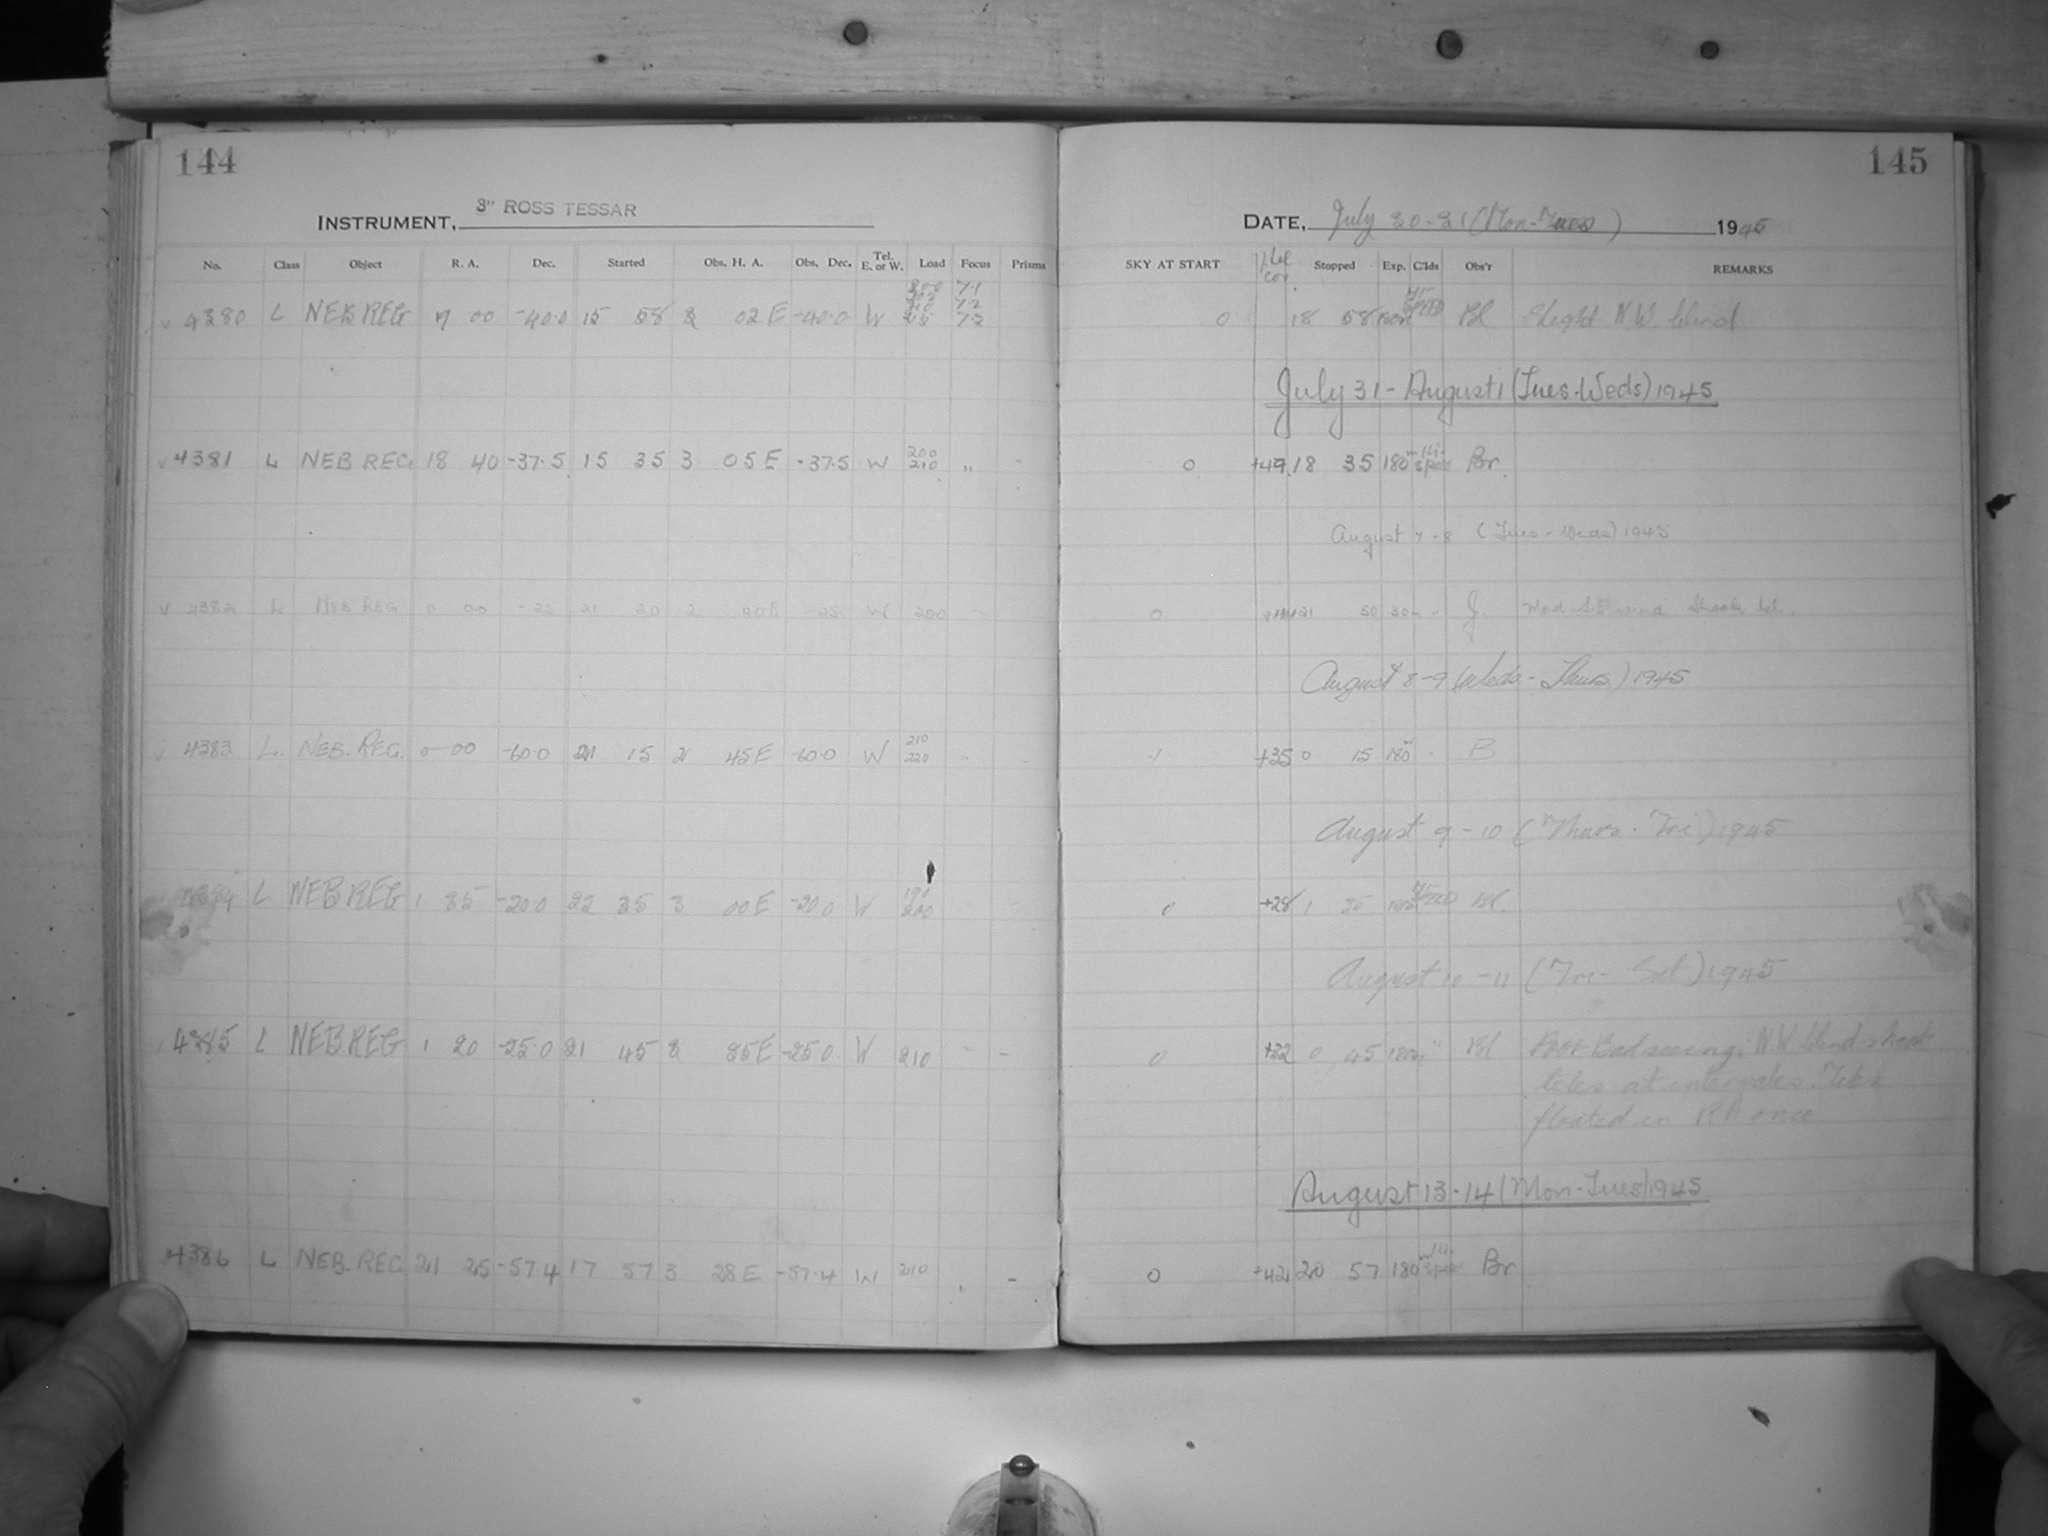 144
INSTRUMENT, 3" ROSS TESSAR
No. Class Object R. A. Dec. Started Obs. H. A. Obs. Dec. Tel. E. or W. Load Focus Prisms
4380 L NEB REG 00 -40.0 15 58 02 E -40.0 W 7.1 7.2 7.2
4381 L NEB REG 18 40 -37.5 15 35 3 05 E -37.5 W 200 210 " -
L NEB REG 0 00 -25 21 20 2 -25 W 200
4383 L. NEB. REG. 0 00 -60.0 21 15 2 45 E -60.0 W 210 220 "
L NEB REG 1 35 -20.0 22 35 3 00 E -20.0 W 200
4385 L NEB REG 1 20 -25.0 21 45 2 35 E -25.0 W 210 - -
4386 L NEB. REG 21 25 -57.4 17 57 3 28 E -57.4 W 210 -
145
DATE, July 30-31 (Mon-Tues) 1945
SKY AT START Stopped Exp. C'lds Obs'r REMARKS
0 18 58 Bl Slight N.W. Wind
July 31 - August 1 (Tues-Weds) 1945
0 +49 18 35 180m Br.
August 7-8 (Tues-Weds) 1945
0 J.
August 8-9 (Weds.-Thurs.) 1945
+35 0 15 180m B
August 9-10 (Thurs.-Fri) 1945
0 +28 1 35 Bl.
August 10-11 (Fri-Sat) 1945
0 +32 0 45 180m " Bl Bad seeing; N.W. Wind shook
teles at intervals. Teles
floated in RA once
August 13-14 (Mon-Tues) 1945
0 +42 20 57 180m Br